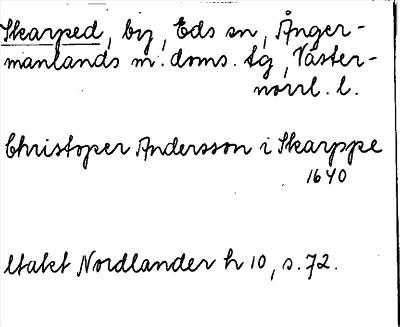 Skarped, by, Eds sn, Ånger-
manlands m. doms. tg, Väster-
norrl. l.
Christoper Andersson i Skarppe
1640
Utakt Nordlander h 10, s. 72.